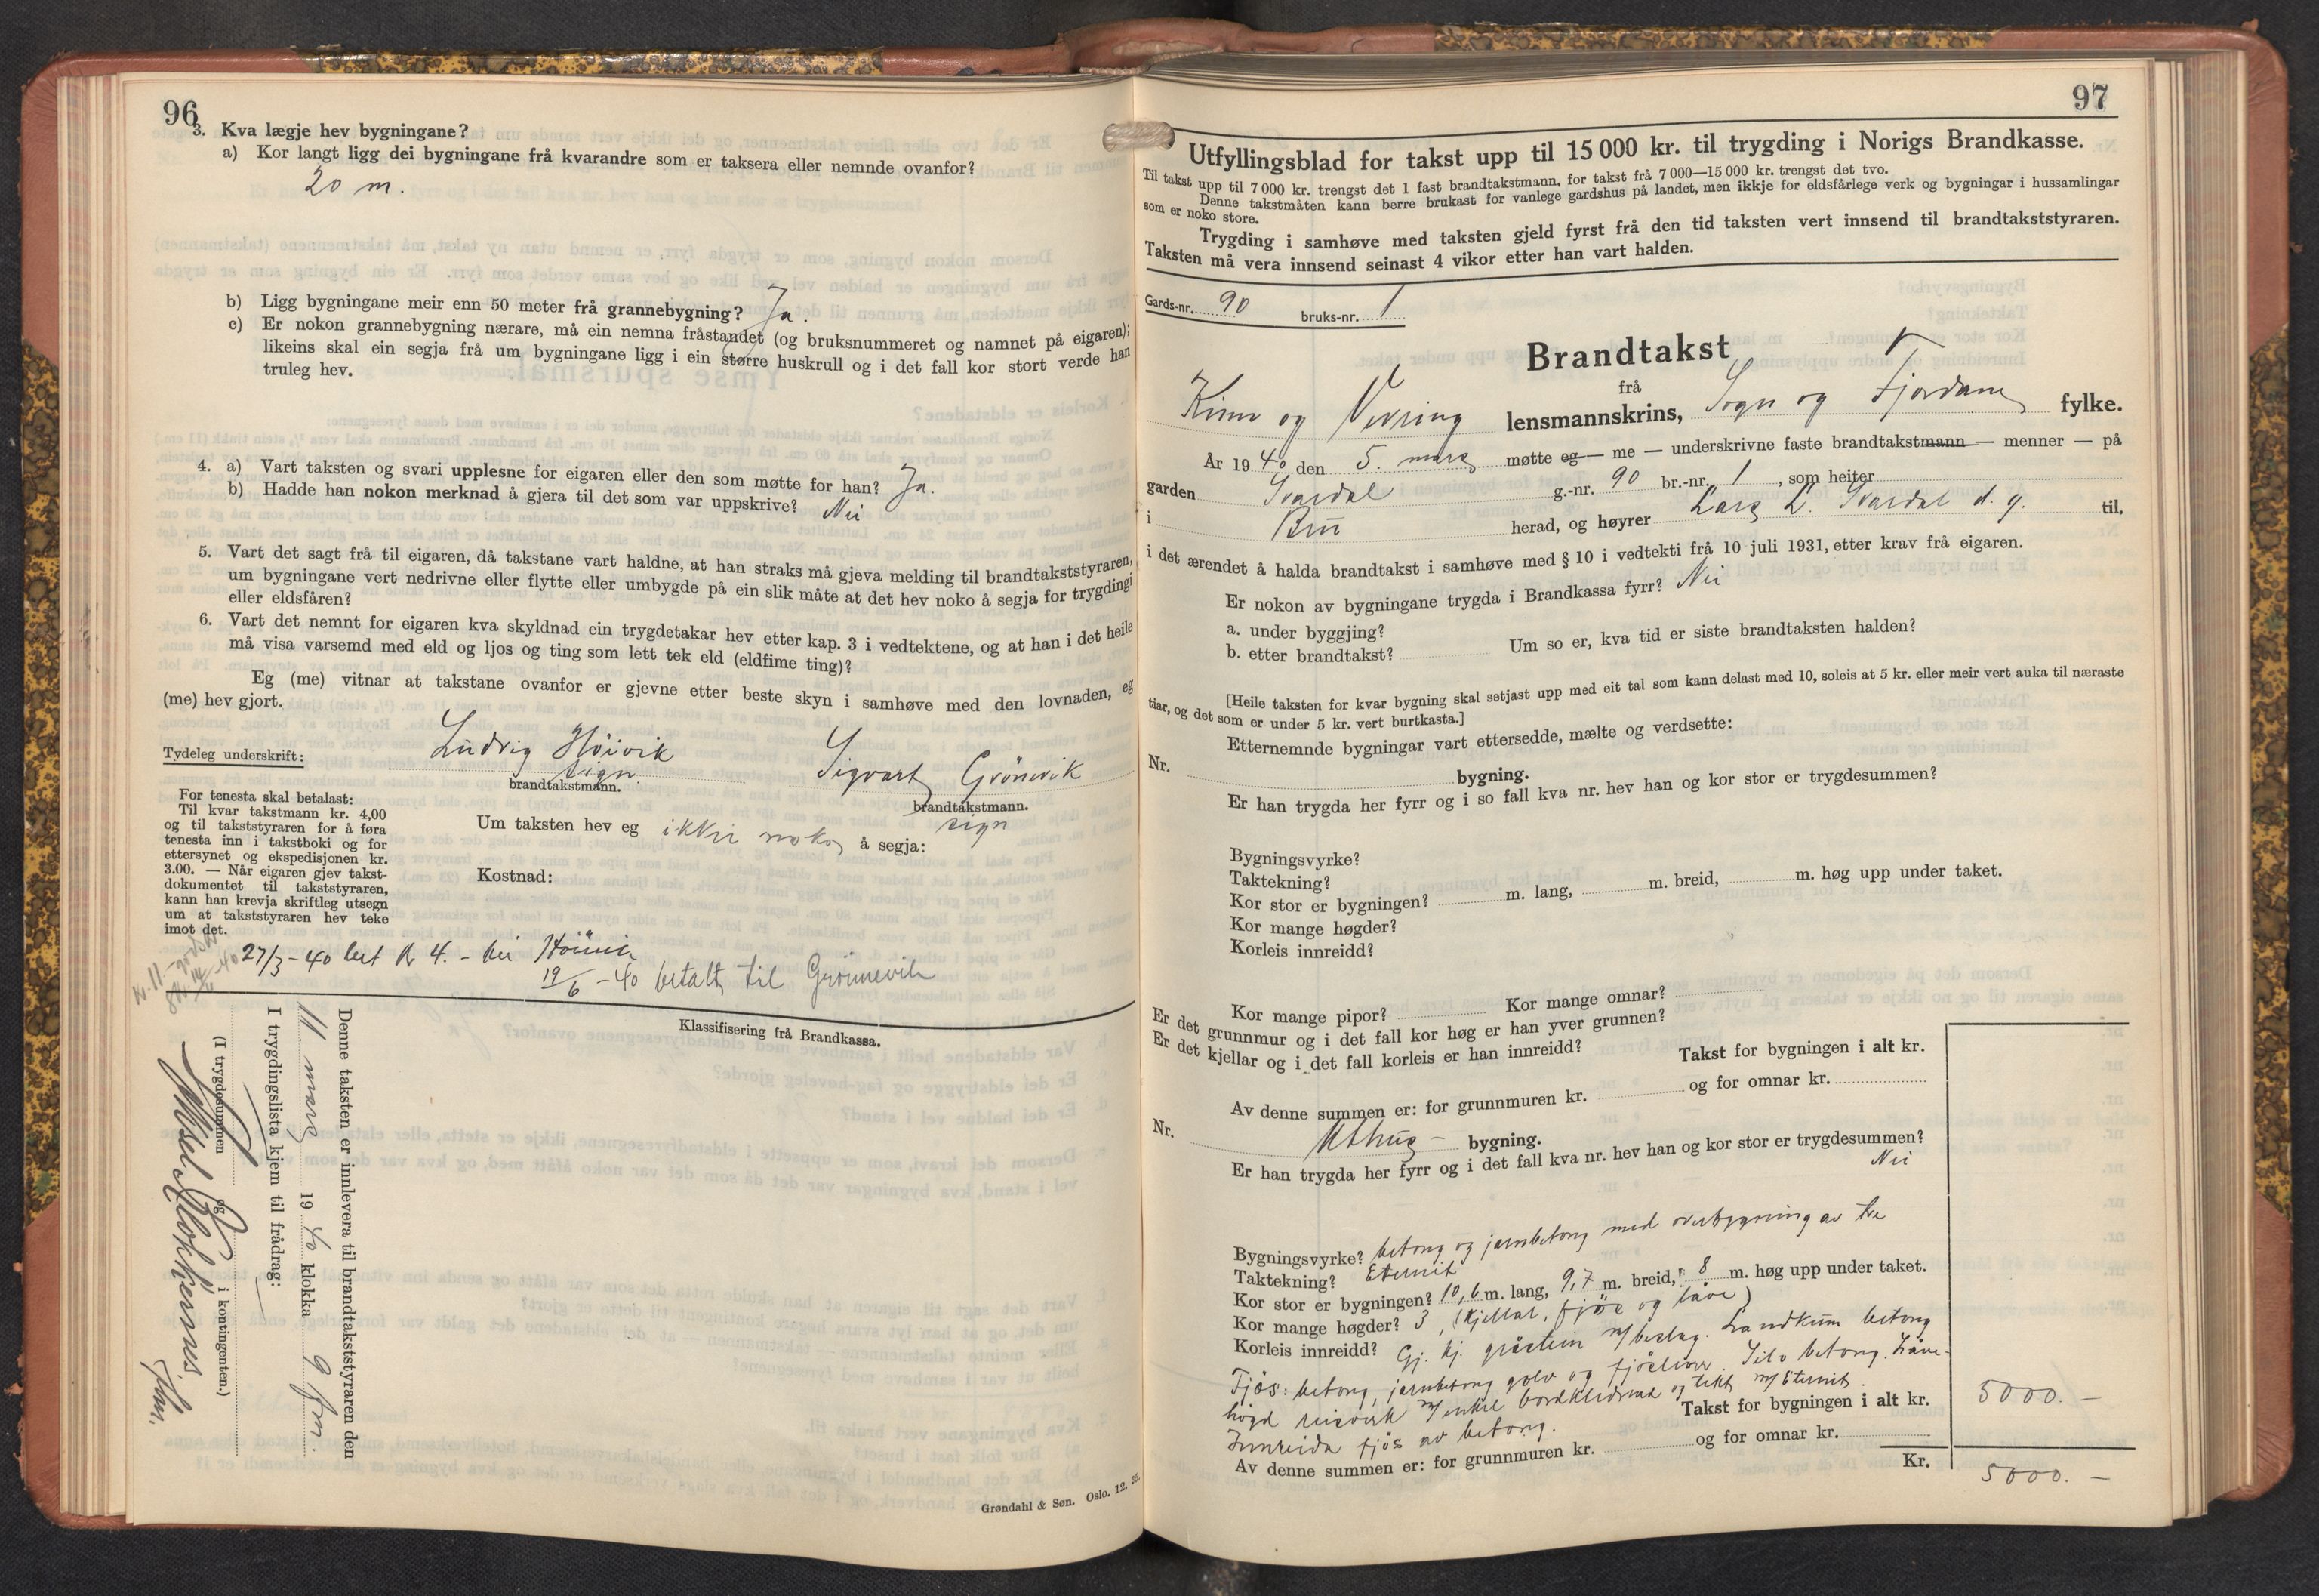 96
3. Kva lægje hev bygningane?
a) Kor langt ligg dei bygningane frå kvarandre som er taksera eller nemnde ovanfor?
20 m.
b) Ligg bygningane meir enn 50 meter frå grannebygning? Ja.
c) Er nokon grannebygning nærare, må ein nemna fråstandet (og bruksnummeret og namnet på eigaren);
likeins skal ein segja frå um bygningane ligg i ein større huskrull og i det fall kor stort verde han
truleg hev.
4. a) Vart taksten og svari upplesne for eigaren eller den som møtte for han? Ja.
b) Hadde han nokon merknad å gjera til det som var uppskrive? Nei
5. Vart det sagt frå til eigaren, då takstane vart haldne, at han straks må gjeva melding til brandtakststyraren,
um bygningane vert nedrivne eller flytte eller umbygde på ein slik måte at det hev noko å segja for trygdingi
eller eldsfåren?
6. Vart det nemnt for eigaren kva skyldnad ein trygdetakar hev etter kap. 3 i vedtektene, og at han i det heile
må visa varsemd med eld og ljos og ting som lett tek eld (eldfime ting)?
Eg (me) vitnar at takstane ovanfor er gjevne etter beste skyn i samhøve med den lovnaden, eg
(me) hev gjort.
Tydeleg underskrift: Ludvig Høivik Sigvart Grönevik
sign.
brandtakstmann. brandtakstmann.
sign
For tenesta skal betalast:
Til kvar takstmann kr. 4,00
og til takststyraren for å føra
tenesta inn i takstboki og for
ettersynet og ekspedisjonen kr.
3.00. — Når eigaren gjev takst-
dokumentet til takststyraren,
kann han krevja skriftleg utsegn
um at takststyraren hev teke
imot det.
Um taksten hev eg ikkje noko å segja:
Kostnad:
27/3-40 bet kr 4.-
19/6-40 betalt til Grönnevik
Klassifisering frå Brandkassa.
Denne taksten er innlevera til brandtakststyraren den
11. mars 1940 klokka 9 fm.
I trygdingslista kjem til frådrag:
(I trygdesummen og i kontingenten.)
Grøndahl & Søn. Oslo. 12. 35.
97
Utfyllingsblad for takst upp til 15 000 kr. til trygding i Norigs Brandkasse.
Til takst upp til 7 000 kr. trengst det 1 fast brandtakstmann, for takst frå 7 000—15 000 kr. trengst det tvo.
Denne takstmåten kann berre brukast for vanlege gardshus på landet, men ikkje for eldsfårlege verk og bygningar i hussamlingar
som er noko store.
Trygding i samhøve med taksten gjeld fyrst frå den tid taksten vert innsend til brandtakststyraren.
Taksten må vera innsend seinast 4 vikor etter han vart halden.
Gards-nr. 90 bruks-nr. 1
Brandtakst
frå
Kinn og Vevring lensmannskrins, Sogn og Fjordane fylke.
År 1940 den 5. mars møtte eg — me — underskrivne faste brandtakstmann — menner — på
garden Svardal g.-nr. 90 br.-nr. 1, som heiter
i Bru herad, og høyrer Lars L. Svardal d. y. til,
i det ærendet å halda brandtakst i samhøve med § 10 i vedtekti frå 10 juli 1931, etter krav frå eigaren.
Er nokon av bygningane trygda i Brandkassa fyrr? Nei
a. under byggjing?
b. etter brandtakst? Um so er, kva tid er siste brandtaksten halden?
[Heile taksten for kvar bygning skal setjast upp med eit tal som kann delast med 10, soleis at 5 kr. eller meir vert auka til næraste
tiar, og det som er under 5 kr. vert burtkasta.]
Etternemnde bygningar vart ettersedde, mælte og verdsette:
Nr. bygning.
Er han trygda her fyrr og i so fall kva nr. hev han og kor stor er trygdesummen?
Bygningsvyrke?
Taktekning?
Kor stor er bygningen? m. lang, m. breid, m. høg upp under taket.
Kor mange høgder?
Korleis innreidd?
Kor mange pipor? Kor mange omnar?
Er det grunnmur og i det fall kor høg er han yver grunnen?
Er det kjellar og i det fall korleis er han innreidd?
Takst for bygningen i alt kr.
Av denne summen er: for grunnmuren kr. og for omnar kr.
Nr. Uthus- bygning.
Er han trygda her fyrr og i det fall kva nr. hev han og kor stor er trygdesummen?
Nei
Bygningsvyrke? betong og jarnbetong med overbygning av tre
Taktekning? Eternit
Kor stor er bygningen? 10,6 m. lang, 9,7 m. breid, 8 m. høg upp under taket.
Kor mange høgder? 3, (kjellar, fjös og låve)
Korleis innreidd? Gj. kj. gråstein m/beslag. Landkum betong
Fjös: betong, jarnbetong golv og fjösliver. Silo betong. Låve-
högd reisverk m/enkel bordkledning og tekt m/Eternit.
Innreida fjös av betong.
Takst for bygningen i alt kr. 5000.-
Av denne summen er: for grunnmuren kr. og for omnar kr.
Kr. 5000.-